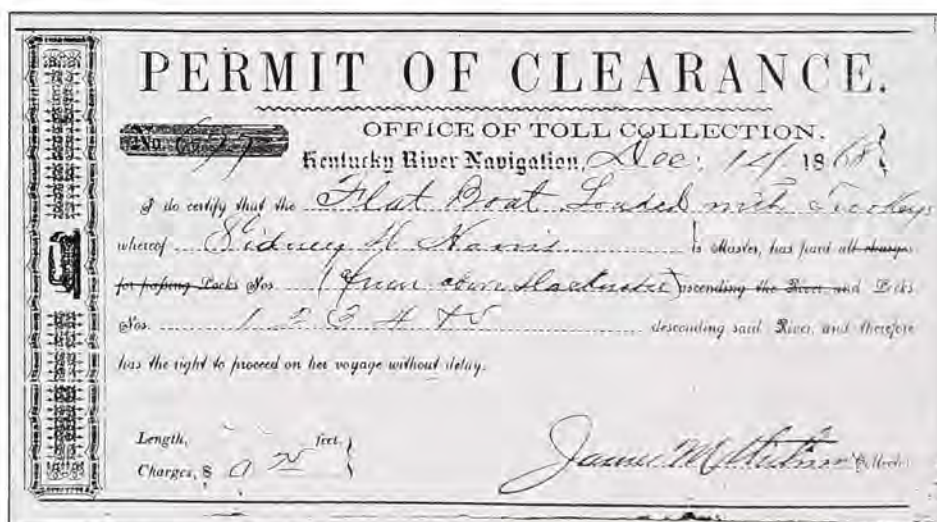 PERMIT OF CLEARANCE.
OFFICE OF TOLL COLLECTION.
No. 677
Kentucky River Navigation, Dec. 14 1868
I do certify that the Flat Boat Loaded with Turkeys
whereof Sidney H. is Master, has paid all charges
for passing Locks Nos. ascending the River and Locks
Nos. 1 2 3 4 & 5 descending said River, and therefore
has the right to proceed on her voyage without delay.
Length, feet.
Charges, $
James M. Collector